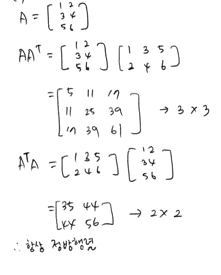 A = [1 2
3 4
5 6]
AAᵀ = [1 2
3 4
5 6] [1 3 5
2 4 6]
= [5 11 17
11 25 39
17 39 61] → 3 × 3
AᵀA = [1 3 5
2 4 6] [1 2
3 4
5 6]
= [35 44
44 56] → 2 × 2
∴ 항상 정방행렬